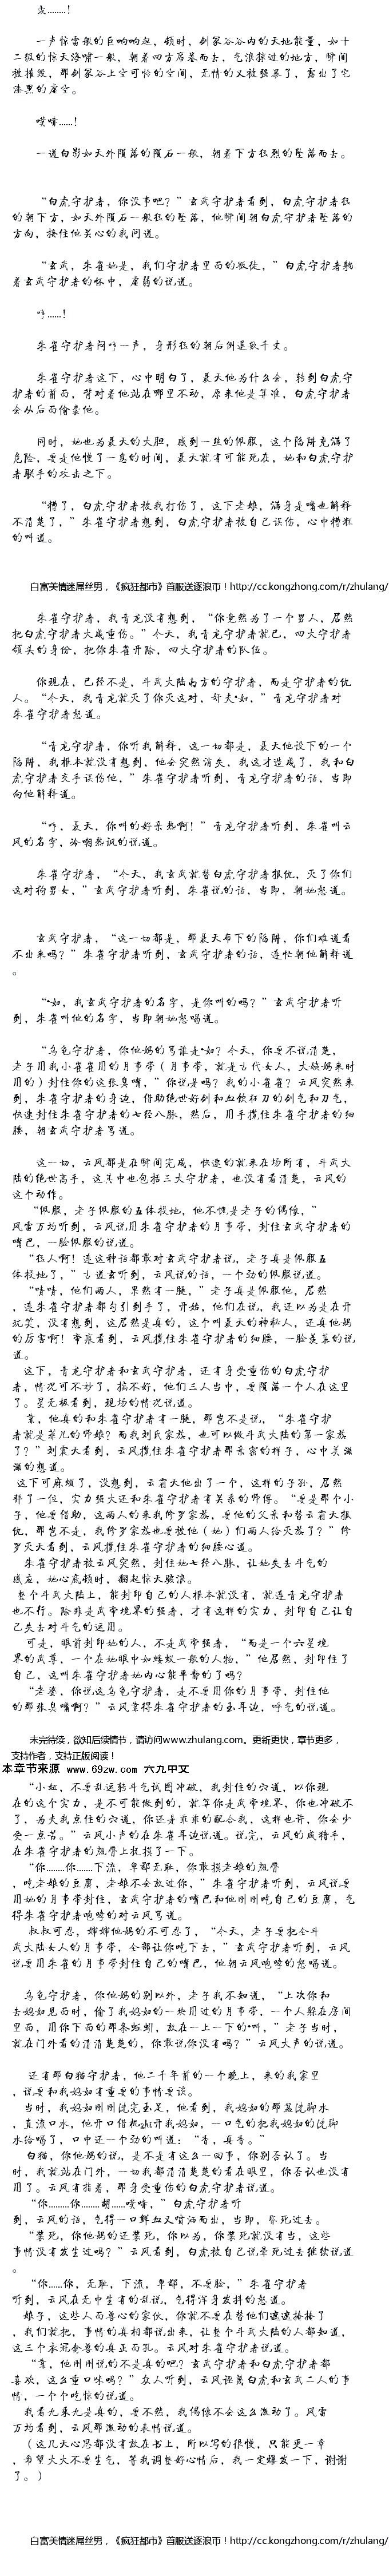 轰........！
一声惊雷般的巨响响起，顿时，剑冢谷谷内的天地能量，如十
二级的惊天海啸一般，朝着四方席卷而去，气浪掠过的地方，瞬间
被摧毁，那剑冢谷上空可怜的空间，无情的又被强暴了，露出了它
漆黑的虚空。
噗嗤......！
一道白影如天外陨落的陨石一般，朝着下方猛烈的坠落而去。
“白虎守护者，你没事吧？”玄武守护者看到，白虎守护者猛
的朝下方，如天外陨石一般猛的坠落，他瞬间朝白虎守护者坠落的
方向，接住他关心的我问道。
“玄武，朱雀她是，我们守护者里面的叛徒，”白虎守护者躺
着玄武守护者的怀中，虚弱的说道。
哼......！
朱雀守护者闷哼一声，身形猛的朝后倒退数千丈。
朱雀守护者这下，心中明白了，聂天他为什么会，转到白虎守
护者的前面，背对着他站在哪里不动，原来他是算准，白虎守护者
会从后面偷袭他。
同时，她也为聂天的大胆，感到一丝的佩服，这个陷阱充满了
危险，要是他慢了一息的时间，聂天就有可能死在，她和白虎守护
者联手的攻击之下。
“糟了，白虎守护者被我打伤了，这下老娘，满身是嘴也解释
不清楚了，”朱雀守护者想到，白虎守护者被自己误伤，心中糟糕
的叫道。
白富美情迷屌丝男，《疯狂都市》首服送逐浪币！http://cc.kongzhong.com/r/zhulang/
朱雀守护者，我青龙没有想到，“你竟然为了一个男人，居然
把白虎守护者大成重伤。”今天，我青龙守护者就已，四大守护者
领头的身份，把你朱雀开除，四大守护者的队伍。
你现在，已经不是，斗武大陆南方的守护者，而是守护者的仇
人。“今天，我青龙就灭了你灭这对，奸夫*妇，”青龙守护者对
朱雀守护者怒道。
“青龙守护者，你听我解释，这一切都是，聂天他设下的一个
陷阱，我根本就没有想到，他会突然消失，我这才造成了，我和白
虎守护者交手误伤他，”朱雀守护者听到，青龙守护者的话，当即
向他解释道。
“哼，聂天，你叫的好亲热啊！”青龙守护者听到，朱雀叫云
风的名字，冷嘲热讽的说道。
朱雀守护者，“今天，我玄武就替白虎守护者报仇，灭了你们
这对狗男女，”玄武守护者听到，朱雀说的话，当即，朝她怒道。
玄武守护者，“这一切都是，那聂天布下的陷阱，你们难道看
不出来吗？”朱雀守护者听到，玄武守护者的话，连忙朝他解释道
。
“*妇，我玄武守护者的名字，是你叫的吗？”玄武守护者听
到，朱雀叫他的名字，当即朝她怒喝道。
“乌龟守护者，你他妈的骂谁是*妇？今天，你要不说清楚，
老子用我小雀雀用的月事带（月事带，就是古代女人，大姨妈来时
用的）封住你的这张臭嘴，”你说是吗？我的小雀雀？云风突然来
到，朱雀守护者的身边，借助绝世好剑和血饮狂刀的剑气和刀气，
快速封住朱雀守护者的七经八脉，然后，用手搂住朱雀守护者的细
腰，朝玄武守护者骂道。
这一切，云风都是在瞬间完成，快速的就来在场所有，斗武大
陆的绝世高手，这其中也包括三大守护者，也没有看清楚，云风的
这个动作。
“佩服，老子佩服的五体投地，他不愧是老子的偶像，”
风雷万均听到，云风说用朱雀守护者的月事带，封住玄武守护者的
嘴巴，一脸佩服的说道。
“狂人啊！连这种话都敢对玄武守护者说，老子真是佩服五
体投地了，”古道玄听到，云风说的话，一个劲的佩服说道。
“啧啧，他们两人，果然有一腿，”老子真是佩服他，居然
，连朱雀守护者都勾引到手了，开始，他们在说，我还以为是在开
玩笑，没有想到，这居然是真的，这个叫聂天的神秘人，还真他妈
的厉害啊！帝宸看到，云风搂住朱雀守护者的细腰，一脸羡慕的说
道。
这下，青龙守护者和玄武守护者，还有身受重伤的白虎守护
者，情况可不妙了，搞不好，他们三人当中，要陨落一个人在这里
了。星无极看到，现场的情况说道。
靠，他真的和朱雀守护者有一腿，那岂不是说，“朱雀守护
者就是菲儿的师娘？而我刘氏家族，也可以做斗武大陆的第一家族
了？”刘震天看到，云风搂住朱雀守护者那亲密的样子，心中美滋
滋的想道。
这下可麻烦了，没想到，云霸天他出了一个，这样的子孙，居然
拜了一位，实力强大还和朱雀守护者有关系的师傅。“要是那个小
子，他要借助，这两人的来我修罗家族，要他的父亲和替云霸天报
仇，那岂不是，我修罗家族也要被他（她）们两人给灭族了？”修
罗灭天看到，云风搂住朱雀守护者的细腰心道。
朱雀守护者被云风突然，封住她七经八脉，让她失去斗气的
感应，她心底顿时，翻起惊天骇浪。
整个斗武大陆上，能封印自己的人根本就没有，就连青龙守护者
也不行。除非是武帝境界的强者，才有这样的实力，封印自己让自
己失去对斗气的运用。
可是，眼前封印她的人，不是武帝强者，“而是一个六星境
界的武尊，一个在她眼中如蝼蚁一般的人物，”他居然，封印住了
自己，这叫朱雀守护者她内心能平静的了吗？
“老婆，你说这乌龟守护者，是不要用你的月事带，封住他
的那张臭嘴啊？”云风靠得朱雀守护者的玉耳边，呼气的说道。
未完待续，欲知后续情节，请访问www.zhulang.com。更新更快，章节更多，
支持作者，支持正版阅读！
本章节来源 www.69zw.com 六九中文
“小妞，不要乱运转斗气试图冲破，我封住的穴道，以你现
在的这个实力，是不可能做到的，就算你是武帝境界，你也冲破不
了，为夫我点住的穴道，你还是乖乖的配合我，这样也许，你会少
受一点苦。”云风小声的在朱雀耳边说道。说完，云风的咸猪手，
在朱雀守护者的翘臀上抚摸了一下。
“你........你......下流，卑鄙无耻，你敢摸老娘的翘臀
，吃老娘的豆腐，老娘不会放过你，”朱雀守护者听到，云风说要
用她的月事带封住，玄武守护者的嘴巴和他刚刚吃自己的豆腐，气
得朱雀守护者咆哮的对云风骂道。
叔叔可忍，婶婶他妈的不可忍了，“今天，老子要把全斗
武大陆女人的月事带，全部让你吃下去，”玄武守护者听到，云风
说要用朱雀的月事带封住自己的嘴巴，他朝云风咆哮的怒喝道。
乌龟守护者，你他妈的别以外，老子我不知道，“上次你和
去妈如见面时，偷了我妈如的一块用过的月事带，一个人躲在房间
里面，用你下面的那条蚯蚓，放在一上一下的*叫，”老子当时，
就在门外看的清清楚楚的，你敢说你没有吗？”云风大声的说道。
还有那白猫守护者，他二千年前的一个晚上，来的我家里
，说要和我妈如有重要的事情要谈。
当时，我妈如刚刚洗完玉足，他看到，我妈如的那盆洗脚水
，直流口水，他开口借机zhi开我妈如，一口气的把我妈如的洗脚
水给喝了，口中还一个劲的叫道：“香，真香。”
白猫，你他妈的说，是不是有这么一回事，你别否认了。当
时，我就站在门外，一切我都清清楚楚的看在眼里，你否认也没有
用了。云风有指着，那身受重伤的白虎守护者说道。
“你.........你........胡......噗嗤，”白虎守护者听
到，云风的话，气得一口鲜血又喷洒而出，当即，昏死过去。
“禁死，你他妈的还禁死，你以为，你禁死就没有当，这些
事情没有发生过吗？”云风看到，白虎被自己说晕死过去继续说道
。
“你......你，无耻，下流，卑鄙，不要脸，”朱雀守护者
听到，云风在无中生有的乱说，气得浑身发抖的怒道。
娘子，这些人面兽心的家伙，你就不要在替他们遮遮掩掩了
，我们就把，事情的真相都说出来，让整个斗武大陆的人都知道，
这三个衣冠禽兽的真正面孔。云风对朱雀守护者说道。
“靠，他刚刚说的不是真的吧？玄武守护者和白虎守护者都
喜欢，这么重口味吗？”众人听到，云风诬蔑白虎和玄武二人的事
情，一个个吃惊的说道。
我看九层九是真的，要不然，我偶像不会这么激动了。风雷
万均看到，云风那激动的表情说道。
（这几天心思都没有放在书上，所以写的很慢，只能更一章
，希望大大不要生气，等我调整好心情后，我一定爆发一下，谢谢
了。）
白富美情迷屌丝男，《疯狂都市》首服送逐浪币！http://cc.kongzhong.com/r/zhulang/